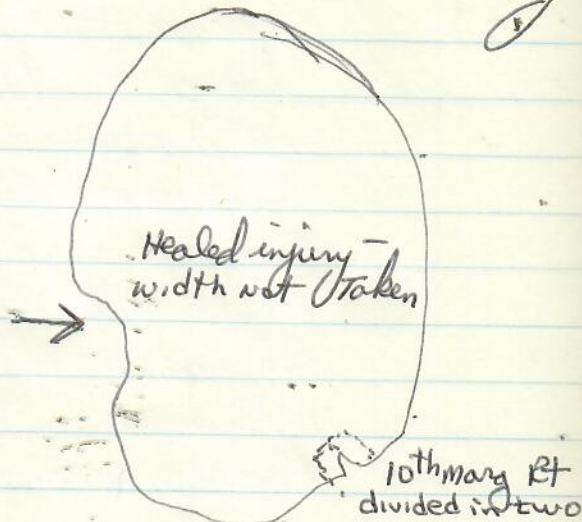 Healed injury –
width not Taken
10th marg Rt
divided in two